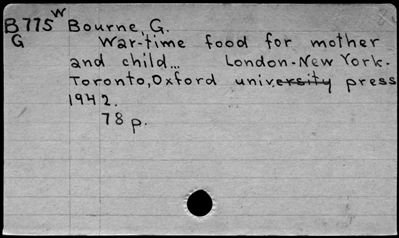 B775 W Bourne, G.
G War-time food for mother
and child... London-New York-
Toronto, Oxford university press
1942.
78 p.